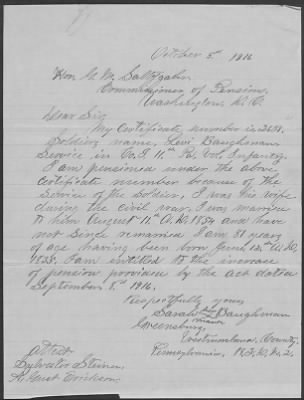 October 5th 1916
Hon. G. M. Saltzgaber
Commissioner of Pensions,
Washington D. C.
Dear Sir
My Certificate number is
Soldiers name, Levi Baughman
Service in Co. I 11th Pa. Vol. Infantry.
I am pensioned under the above
certificate number because of the
Service of the Soldier, I was his wife
during the civil war, I was married
to him August 11th A.D. 1854 and have
not since remarried I am 81 years
of age having been born June 12th A.D.
1835. I am entitled to the increase
of pension provided by the act dated
September 8th 1916.
Respectfully yours
Sarah her Baughman
mark
Greensburg,
Westmoreland County,
Pennsylvania. R.F.D. No. 2.
Attest
Sylvester
A. Gust Erickson